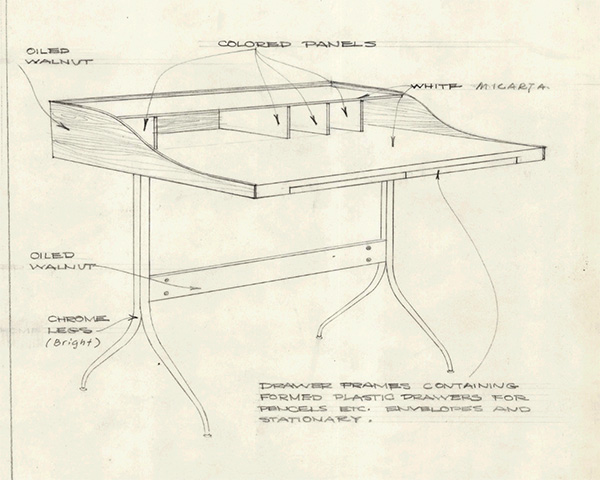 COLORED PANELS
OILED
WALNUT
WHITE MICARTA
OILED
WALNUT
CHROME
LEGS
(Bright)
DRAWER FRAMES CONTAINING
FORMED PLASTIC DRAWERS FOR
PENCELS ETC. ENVELOPES AND
STATIONARY.